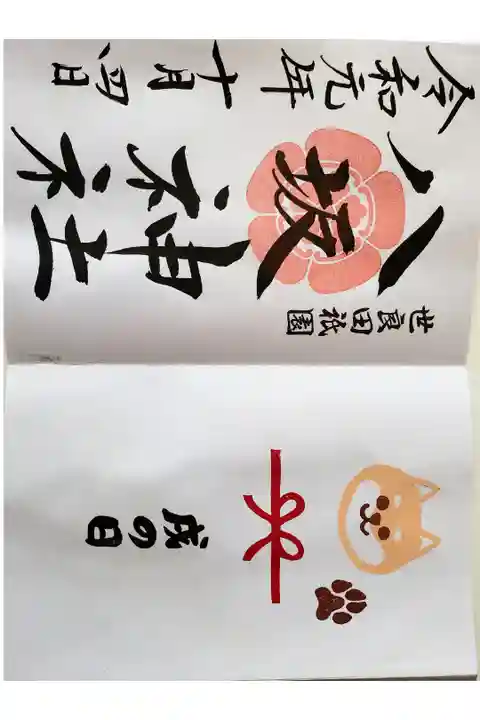 戌の日
世良田祇園
八坂神社
令和元年十月四日